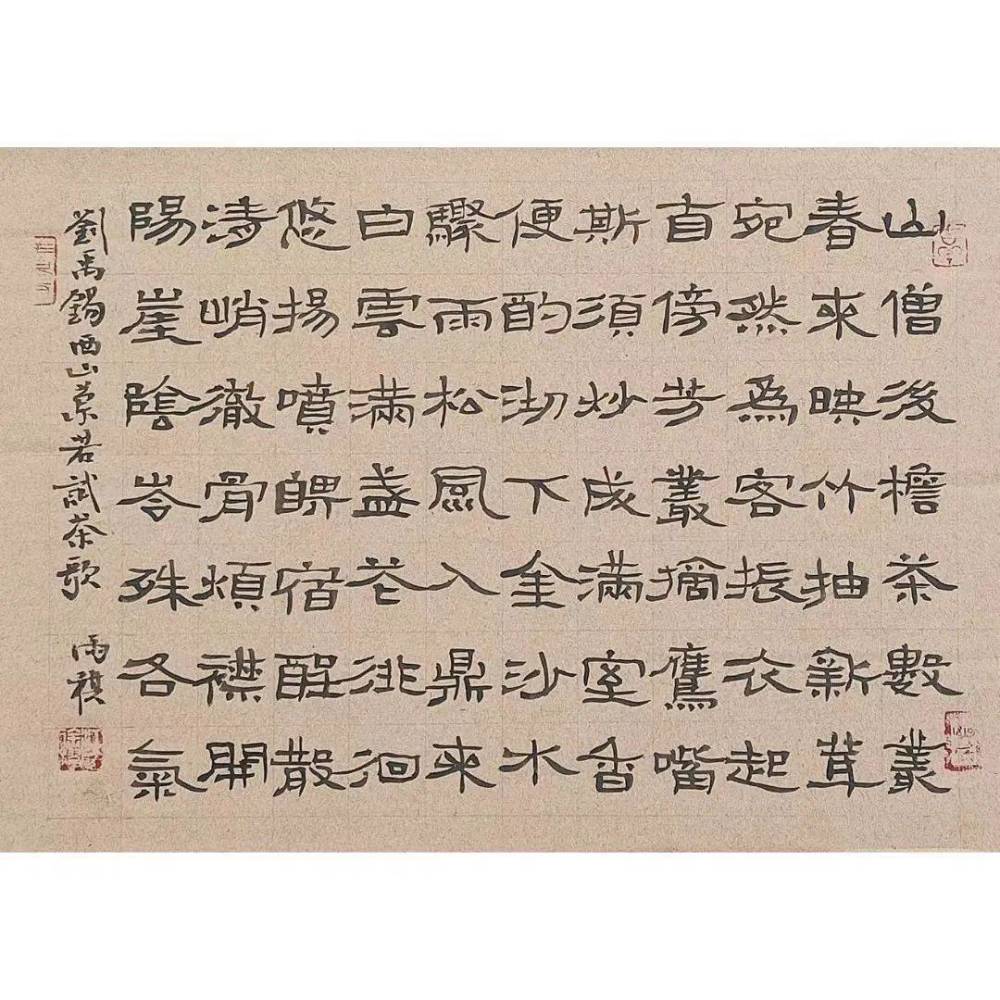 山僧後檐茶數叢
春來映竹抽新茸
宛然爲客振衣起
自傍芳叢摘鷹嘴
斯須炒成滿室香
便酌沏下金沙水
驟雨松風入鼎來
白雲滿盞花徘徊
悠揚噴鼻宿醒散
清峭徹骨煩襟開
陽崖陰岺殊各氣
劉禹錫西山蘭若試茶歌 雨祺